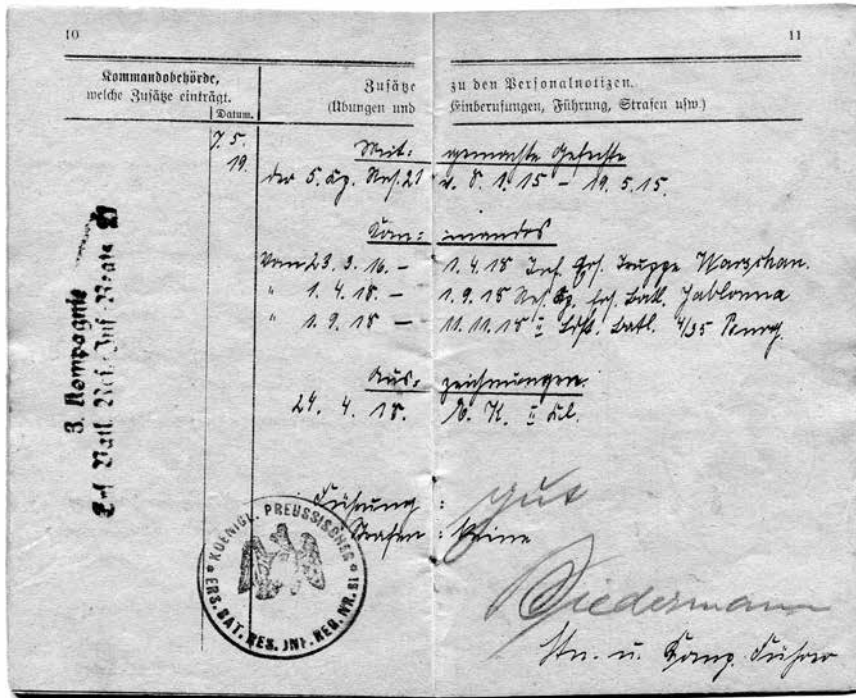 10
11
Kommandobehörde,
welche Zusätze einträgt.
Datum.
Zusätze zu den Personalnotizen.
(Übungen und Einberufungen, Führung, Strafen usw.)
7. 5.
19.
Mit: gemachte Gefechte
der 5. Kp. Res. 21 v. 8. 1. 15 – 19. 5. 15.
Kom: mandos
Vom 23. 3. 16. – 1. 4. 18 Inf. Ers. Truppe Warschau.
" 1. 4. 18. – 1. 9. 18 Res. Ers. Batl. Jablonna
" 1. 9. 18 – 11. 11. 18 II Ldst. Batl.
Aus: zeichnungen.
24. 4. 18. E. K. II Kl.
Führung : gut
Strafen : Keine
Biedermann
Ltn. u. Komp. Führer
3. Kompagnie
Ers. Batl. Res. Inf. Regts 21
KOENIGL. PREUSSISCHES
ERS. BAT. RES. INF. REG. NR.